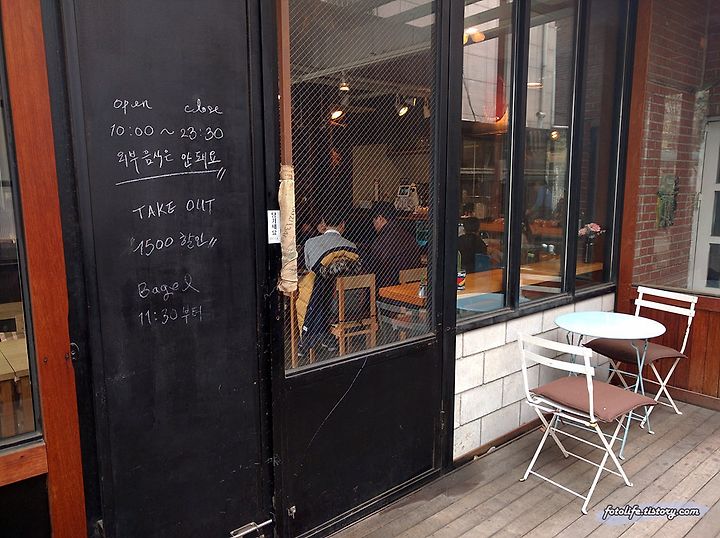 open close
10:00 ~ 23:30
외부 음식은 안돼요
TAKE OUT
"1500 할인"
Bagel
11:30 부터
당기세요
fotolife.tistory.com